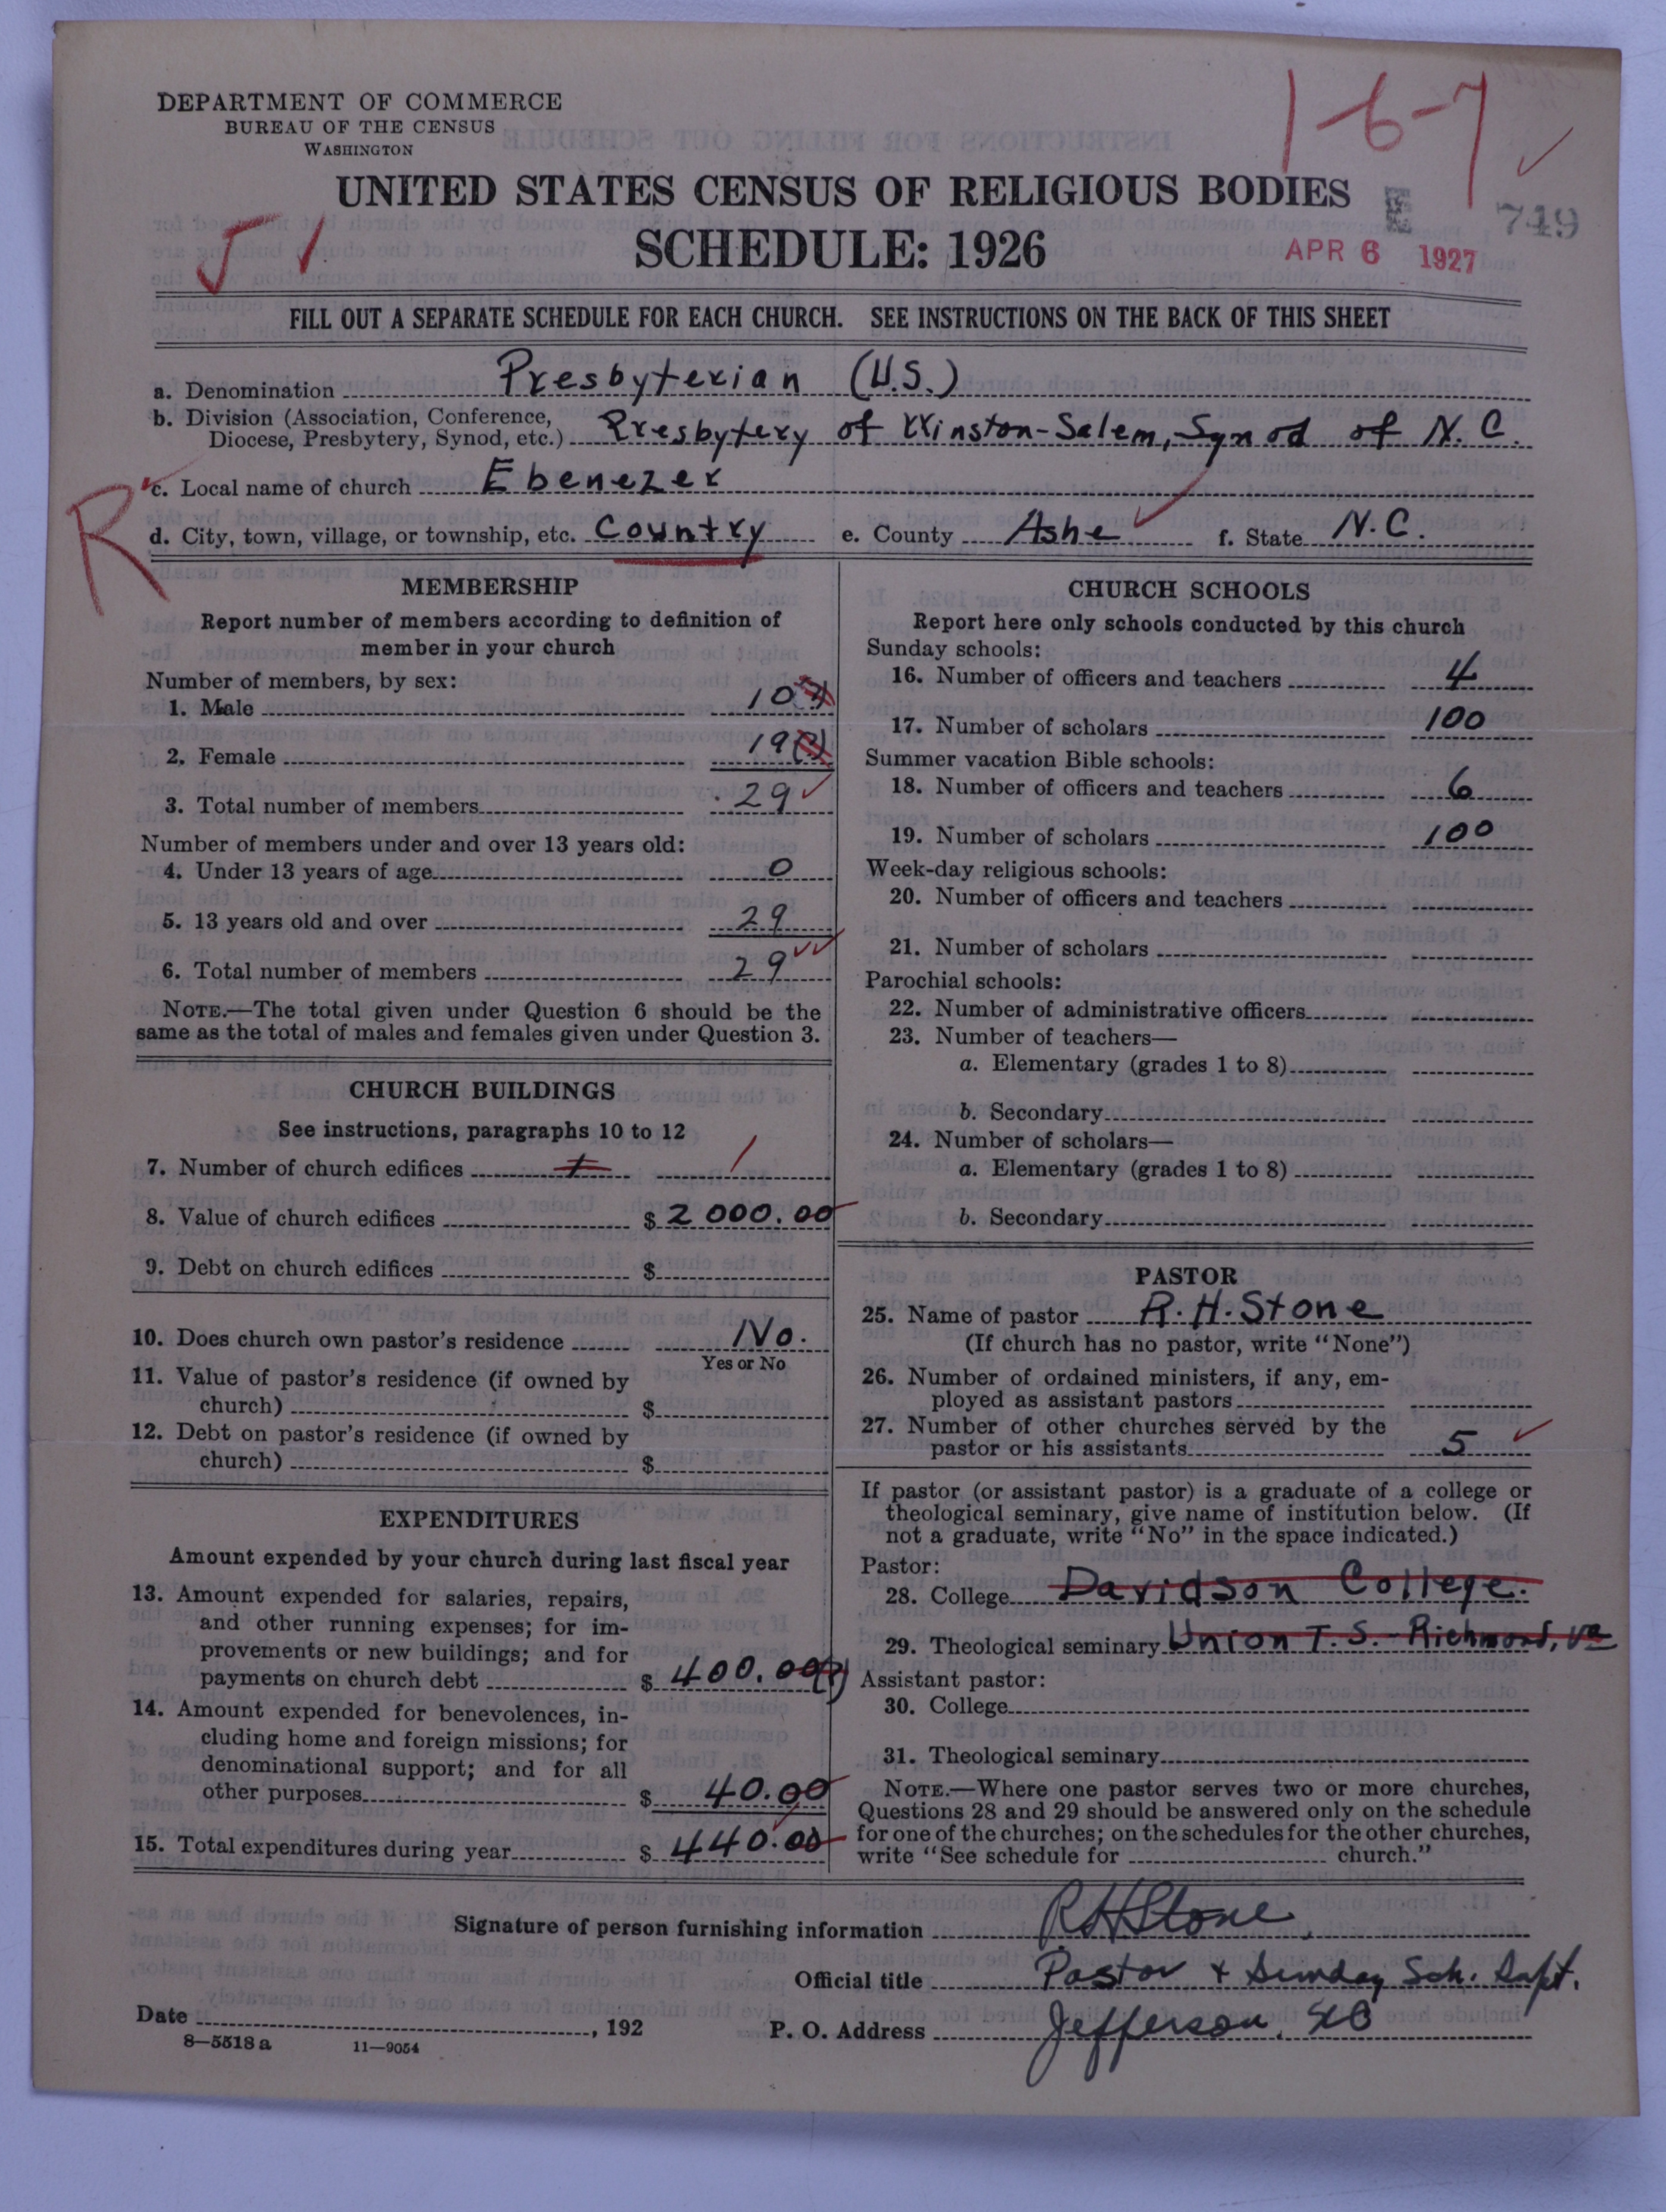 DEPARTMENT OF COMMERCE
BUREAU OF THE CENSUS
WASHINGTON
1-6-7
UNITED STATES CENSUS OF RELIGIOUS BODIES
SCHEDULE: 1926
E 749
APR 6 1927
FILL OUT A SEPARATE SCHEDULE FOR EACH CHURCH. SEE INSTRUCTIONS ON THE BACK OF THIS SHEET
a. Denomination Presbyterian (U.S.)
b. Division (Association, Conference,
Diocese, Presbytery, Synod, etc.) Presbytery of Winston-Salem, Synod of N.C.
c. Local name of church Ebenezer
R
d. City, town, village, or township, etc. Country e. County Ashe f. State N.C.
MEMBERSHIP
Report number of members according to definition of
member in your church
Number of members, by sex:
1. Male 10 (?)
2. Female 19 (?)
3. Total number of members 29
Number of members under and over 13 years old:
4. Under 13 years of age 0
5. 13 years old and over 29
6. Total number of members 29
NOTE.—The total given under Question 6 should be the
same as the total of males and females given under Question 3.
CHURCH BUILDINGS
See instructions, paragraphs 10 to 12
7. Number of church edifices 1 1
8. Value of church edifices $ 2000.00
9. Debt on church edifices $
10. Does church own pastor's residence No.
Yes or No
11. Value of pastor's residence (if owned by
church) $
12. Debt on pastor's residence (if owned by
church) $
EXPENDITURES
Amount expended by your church during last fiscal year
13. Amount expended for salaries, repairs,
and other running expenses; for im-
provements or new buildings; and for
payments on church debt $ 400.00(?)
14. Amount expended for benevolences, in-
cluding home and foreign missions; for
denominational support; and for all
other purposes $ 40.00
15. Total expenditures during year $ 440.00
CHURCH SCHOOLS
Report here only schools conducted by this church
Sunday schools:
16. Number of officers and teachers 4
17. Number of scholars 100
Summer vacation Bible schools:
18. Number of officers and teachers 6
19. Number of scholars 100
Week-day religious schools:
20. Number of officers and teachers
21. Number of scholars
Parochial schools:
22. Number of administrative officers
23. Number of teachers—
a. Elementary (grades 1 to 8)
b. Secondary
24. Number of scholars—
a. Elementary (grades 1 to 8)
b. Secondary
PASTOR
25. Name of pastor R. H. Stone
(If church has no pastor, write "None")
26. Number of ordained ministers, if any, em-
ployed as assistant pastors
27. Number of other churches served by the
pastor or his assistants 5
If pastor (or assistant pastor) is a graduate of a college or
theological seminary, give name of institution below. (If
not a graduate, write "No" in the space indicated.)
Pastor:
28. College Davidson College.
29. Theological seminary Union T. S. - Richmond, Va
Assistant pastor:
30. College
31. Theological seminary
NOTE.—Where one pastor serves two or more churches,
Questions 28 and 29 should be answered only on the schedule
for one of the churches; on the schedules for the other churches,
write "See schedule for church."
Signature of person furnishing information R H Stone
Official title Pastor & Sunday Sch. Supt.
Date , 192
P. O. Address Jefferson, N.C.
8—5518 a 11—9054